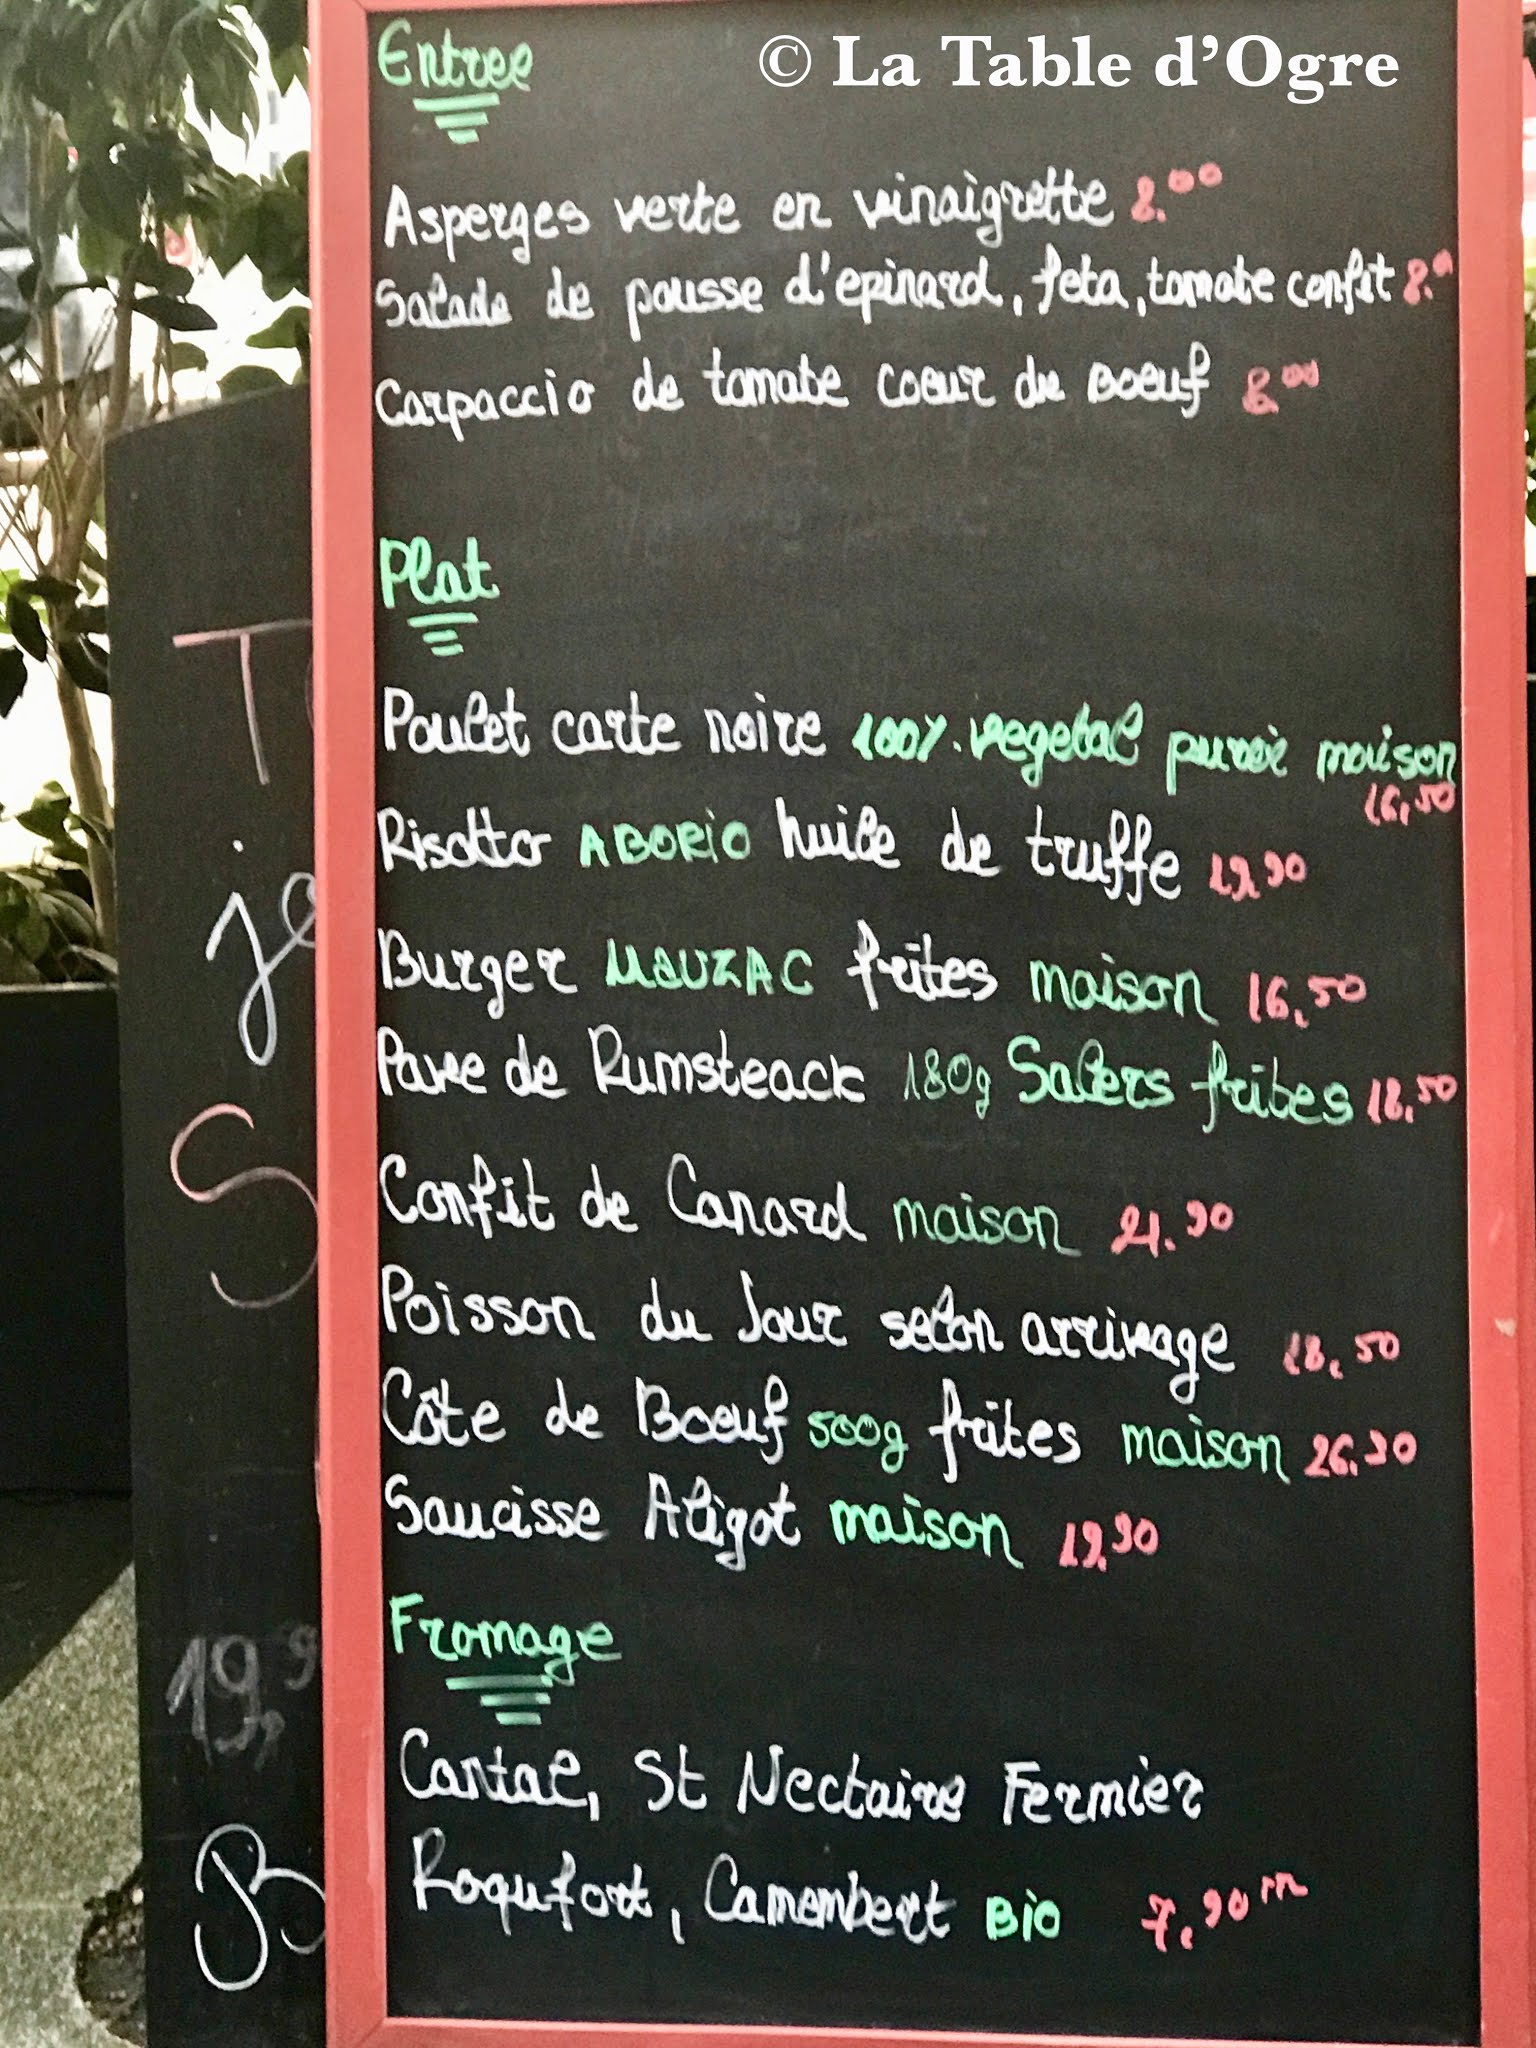 © La Table d'Ogre
Entree
Asperges verte en vinaigrette 8.00
Salade de pousse d'epinard, feta, tomate confit 8.
Carpaccio de tomate coeur de Boeuf 8 00
Plat
Poulet carte noire 100% vegetal puree maison
16,50
Risotto ABORIO huile de truffe 19,90
Burger MAUZAC frites maison 16,50
Pave de Rumsteack 180g Salers frites 18,50
Confit de Canard maison 21.90
Poisson du Jour selon arrivage 18,50
Côte de Boeuf 500g frites maison 26,90
Saucisse Aligot maison 19,90
Fromage
Cantal, St Nectaire Fermier
Roqufort, Camembert BIO 7,90
T
je
S
19,9
B